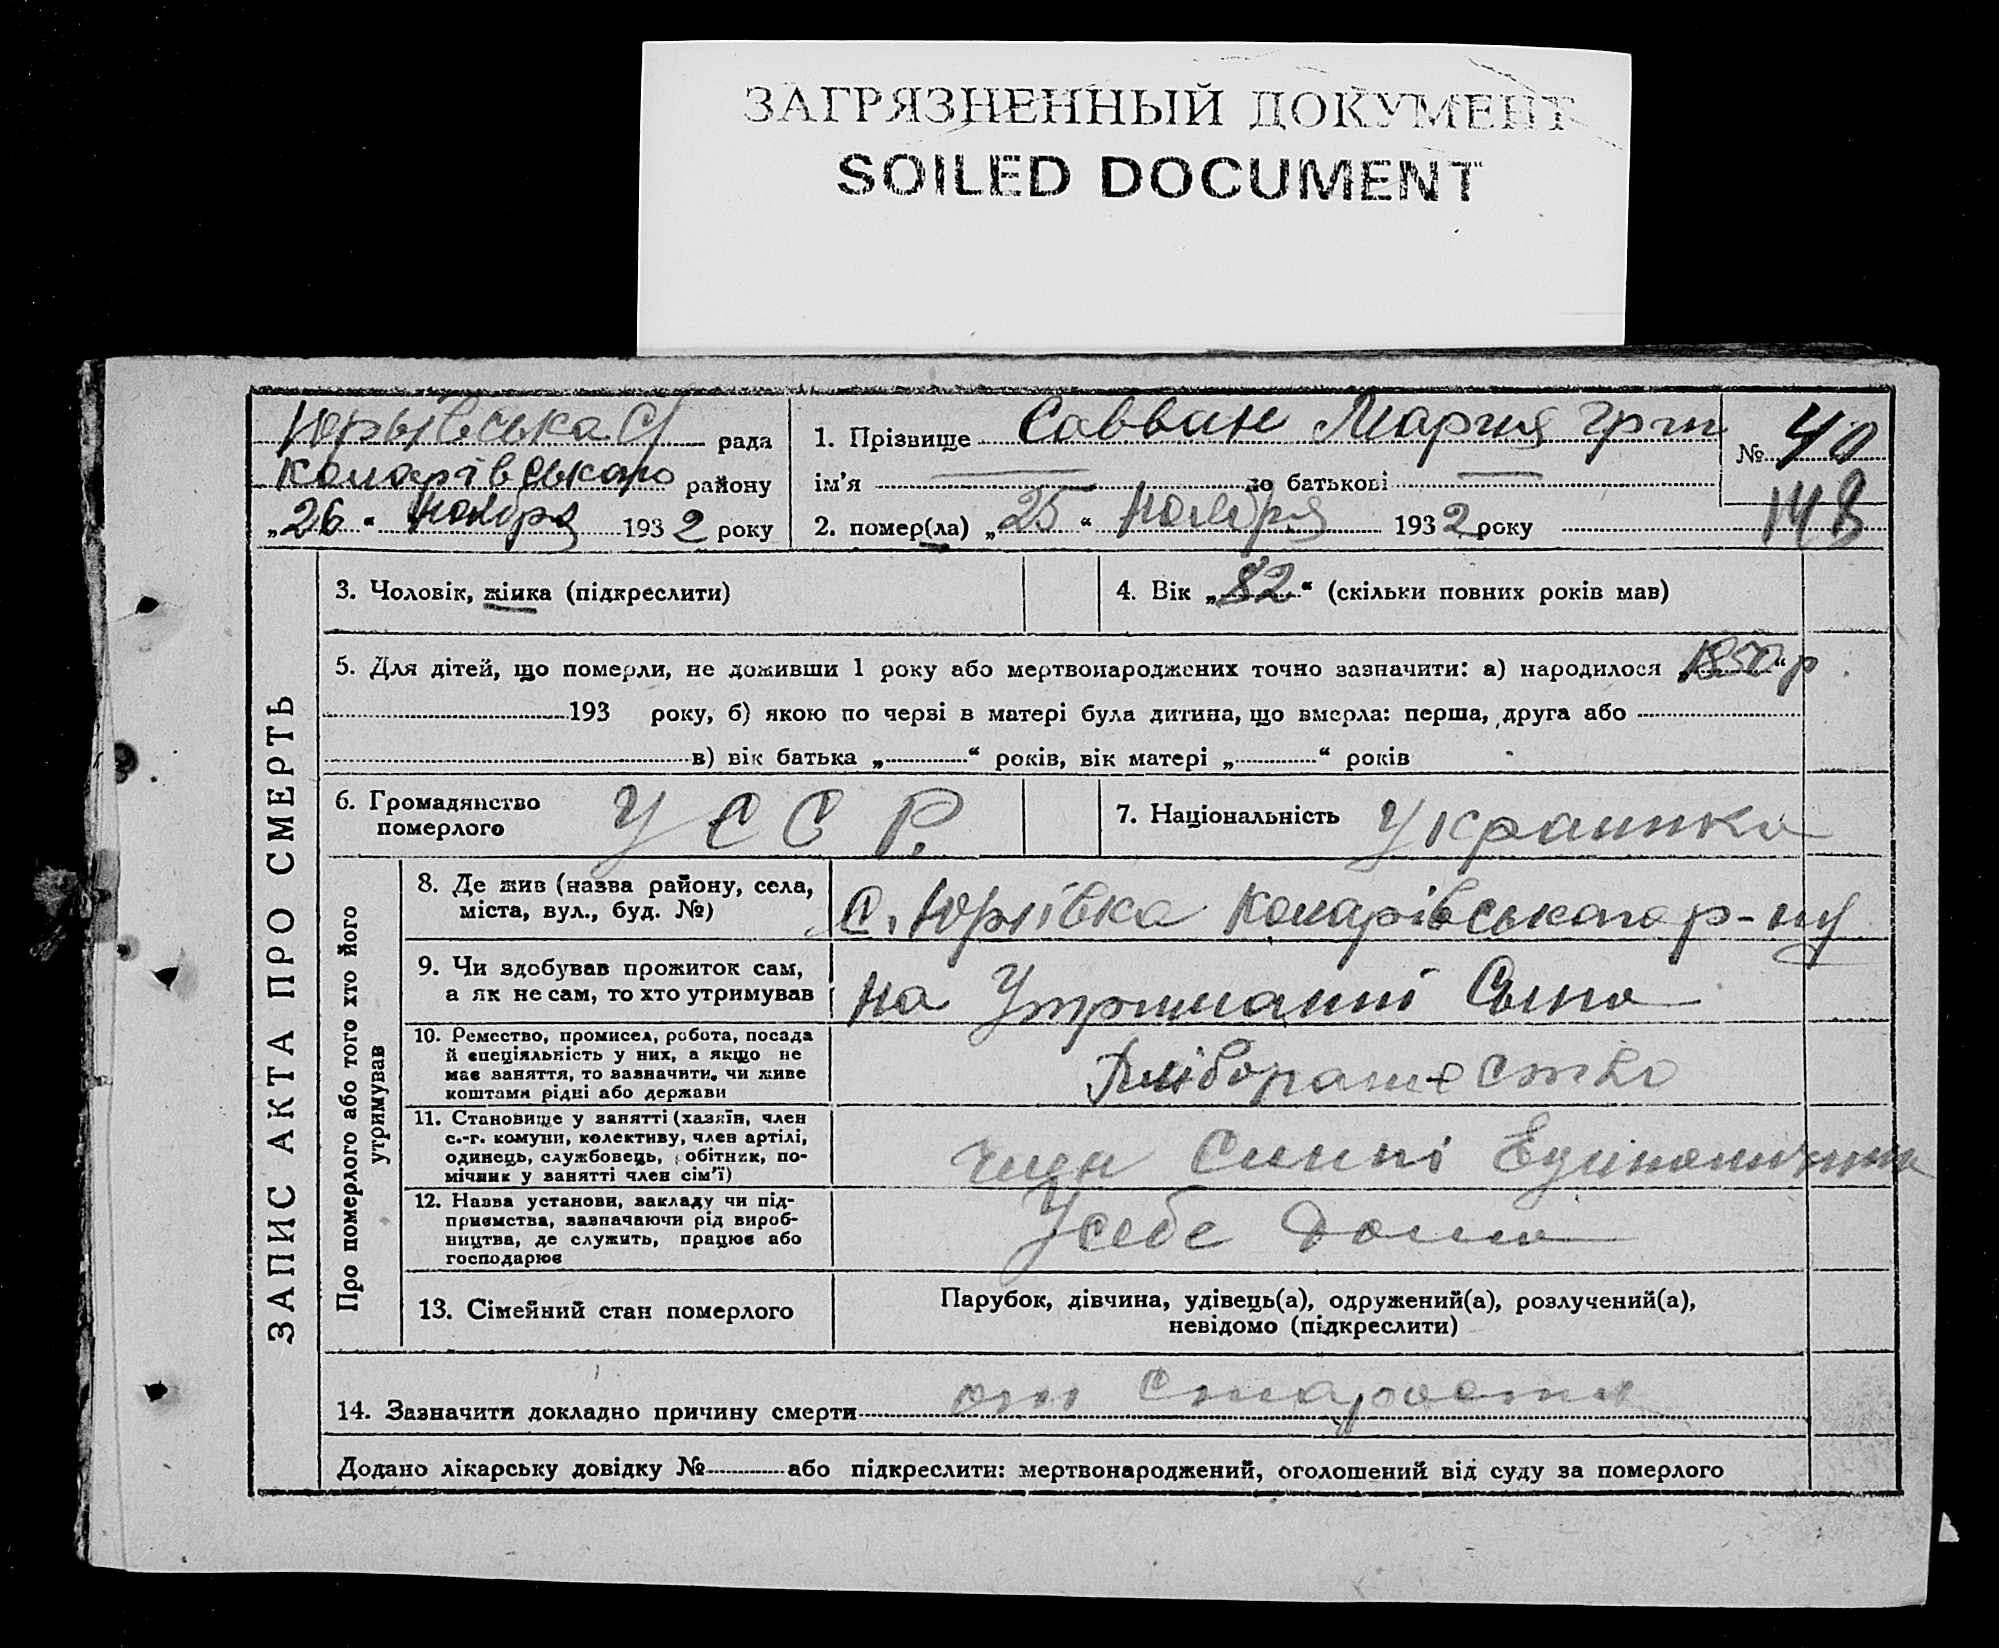 ЗАГРЯЗНЕННЫЙ ДОКУМЕНТ
SOILED DOCUMENT
Юрьівська С/ рада
Комарівського району
„26“ ноября 1932 року
1. Прізвище Савван Мария Григ
ім’я — по батькові —
2. помер(ла) „25“ Ноября 1932 року
№ 40
148
ЗАПИС АКТА ПРО СМЕРТЬ
3. Чоловік, жінка (підкреслити)
4. Вік „82“ (скільки повних років мав)
5. Для дітей, що померли, не доживши 1 року або мертвонароджених точно зазначити: а) народилося „1850“ р
193 року, б) якою по черзі в матері була дитина, що вмерла: перша, друга або
в) вік батька „ “ років, вік матері „ “ років
6. Громадянство
померлого
УССР.
7. Національність Украинка
Про померлого або того хто його
утримував
8. Де жив (назва району, села,
міста, вул., буд. №)
С. Юріївка Комарівського р-ну
9. Чи здобував прожиток сам,
а як не сам, то хто утримував
на Утриманні Сына
10. Ремество, промисел, робота, посада
й спеціяльність у них, а якщо не
має заняття, то зазначити, чи живе
коштами рідні або держави
11. Становище у занятті (хазяїн, член
с.-г. комуни, колективу, член артілі,
одинець, службовець, робітник, по-
мічник у занятті член сім’ї)
член
12. Назва установи, закладу чи під-
приємства, зазначаючи рід вироб-
ництва, де служить, працює або
господарює
У себе Дома
13. Сімейний стан померлого
Парубок, дівчина, удівець(а), одружений(а), розлучений(а),
невідомо (підкреслити)
14. Зазначити докладно причину смерти от Старости
Додано лікарську довідку № або підкреслити: мертвонароджений, оголошений від суду за померлого